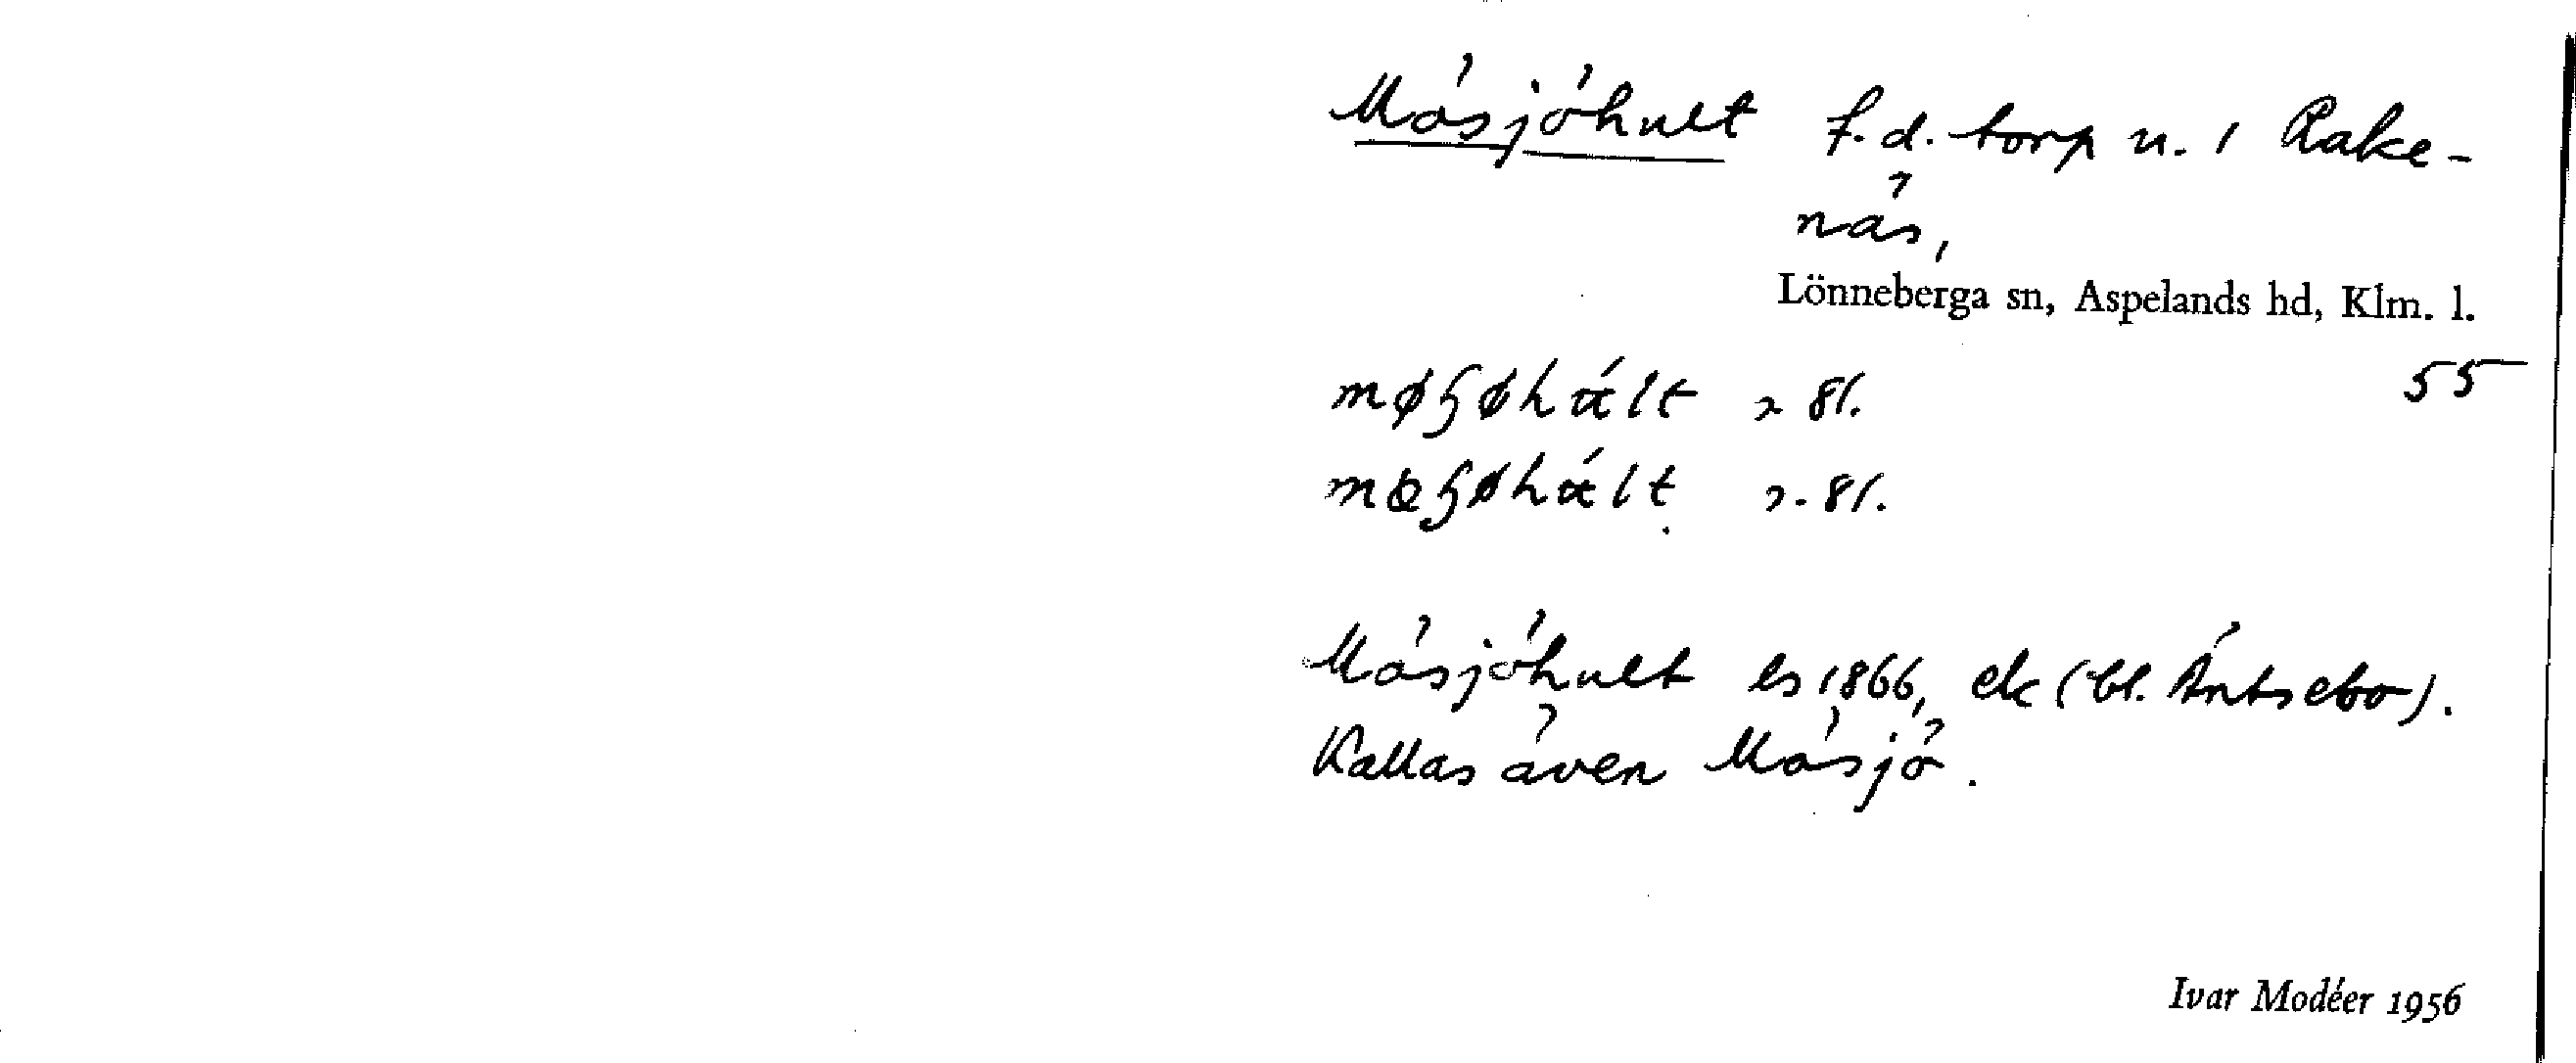 Mösjöhult f.d. torp u. 1 Rake-
näs,
Lönneberga sn, Aspelands hd, Klm. l.
55
møɧøhált
mɵɧøhált
Mösjöhult ls 1866, ek (bl. Äntsebo).
Kallas även Mösjö.
Ivar Modéer 1956